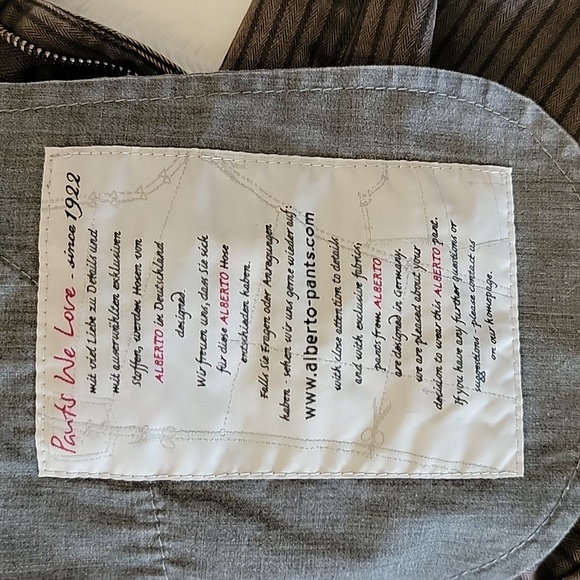 Pants We Love - since 1922
mit viel Liebe zu Details und
mit auserwählten exklusiven
Stoffen, werden Hosen von
ALBERTO in Deutschland
designed.
Wir freuen uns, dass Sie sich
für diese ALBERTO Hose
entschieden haben.
Falls Sie Fragen oder Anregungen
haben - sehen wir uns gerne wieder auf:
www.alberto-pants.com
with close attention to details
and with exclusive fabrics,
pants from ALBERTO
are designed in Germany.
we are pleased about your
decision to wear this ALBERTO pane.
If you have any further questions or
suggestions - please contact us
on our homepage.